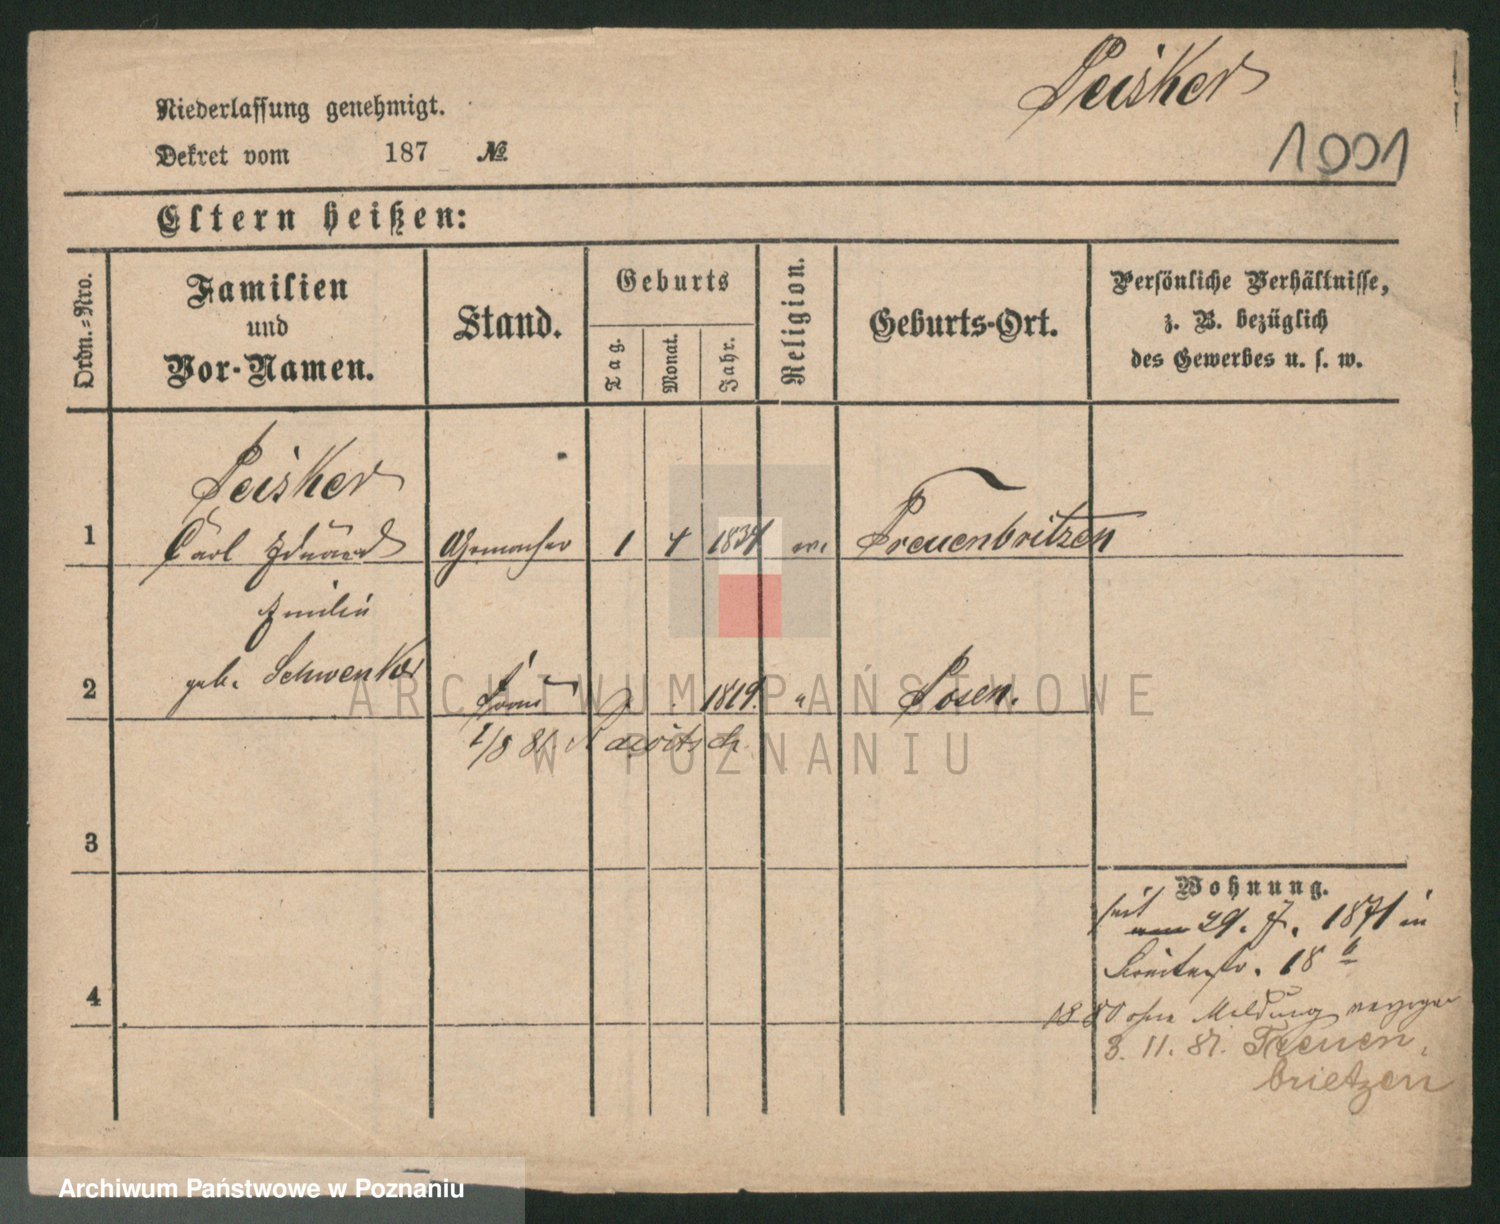 Peisker
Niederlassung genehmigt.
1001
Dekret vom 187 №
Eltern heißen:
Ordn.=Nro.
Familien
und
Vor-Namen.
Stand.
Geburts
Tag.
Monat.
Jahr.
Religion.
Geburts-Ort.
Persönliche Verhältnisse,
z. B. bezüglich
des Gewerbes u. s. w.
Peisker
1 Carl Eduard Uhrmacher 1 4 1834 ev. Treuenbritzen
Emilie
2 geb. Schwenker Frau 1819. " Posen.
1/8 81. Rawitsch
3
Wohnung.
seit 29. 7. 1871 in
Breitestr. 18 b
4
1880 ohne Meldung verzogen
3. 11. 81. Treuen
brietzen
ARCHIWUM PAŃSTWOWE
W POZNANIU
Archiwum Państwowe w Poznaniu